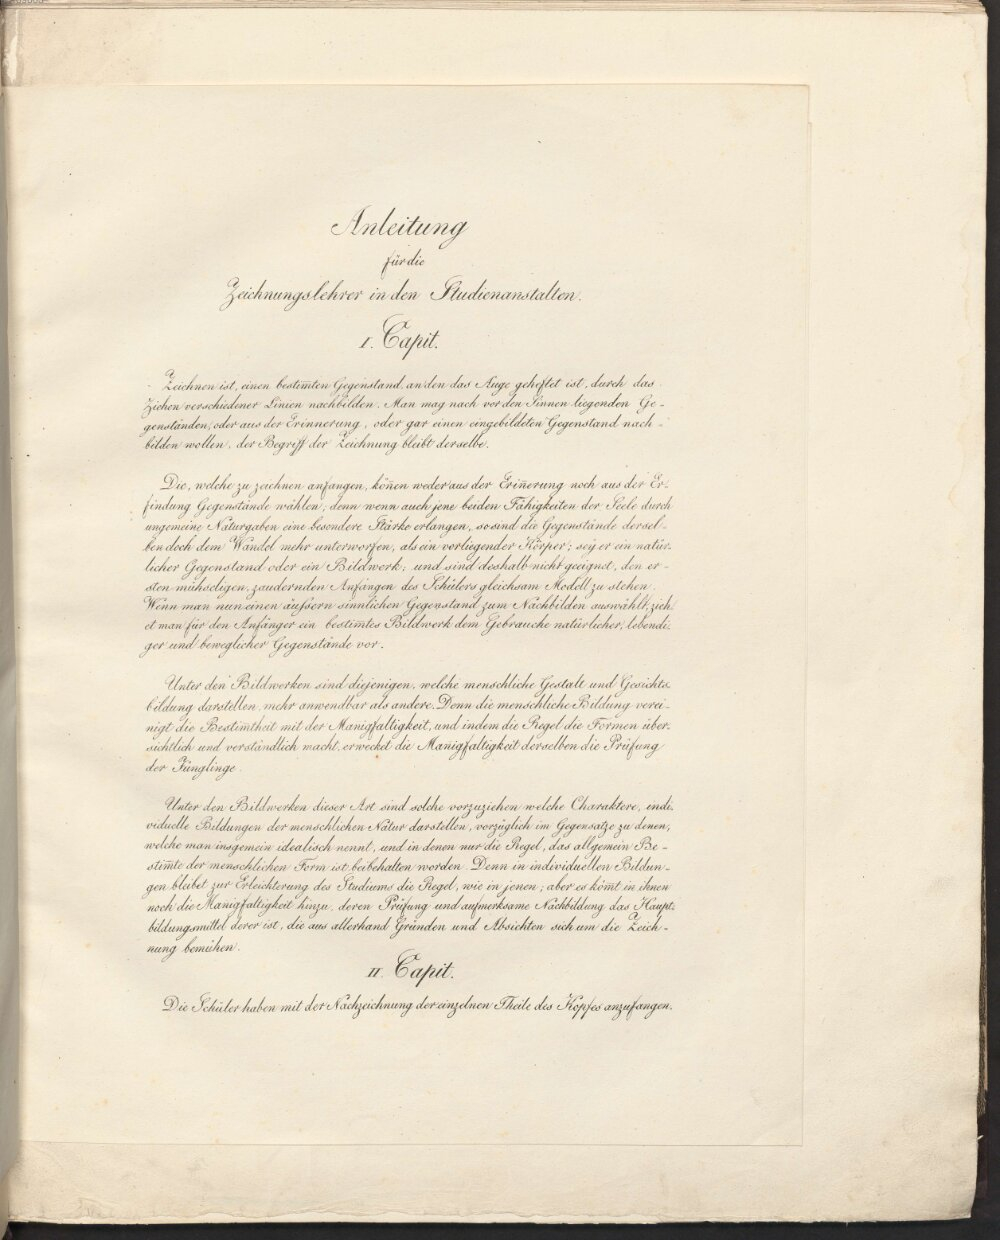 Anleitung
für die
Zeichnungslehrer in den Studienanstalten.
I. Capit.
Zeichnen ist, einen bestim̄ten Gegenstand, an den das Auge geheftet ist, durch das
Ziehen verschiedener Linien nachbilden. Man mag nach vor den Sinnen liegenden Ge-
genständen, oder aus der Erinnerung, oder gar einen eingebildeten Gegenstand nach-
bilden wollen, der Begriff der Zeichnung bleibt derselbe.
Die, welche zu zeichnen anfangen, kön̄en weder aus der Erin̄erung noch aus der Er-
findung Gegenstände wählen; denn wenn auch jene beiden Fähigkeiten der Seele durch
ungemeine Naturgaben eine besondere Stärke erlangen, so sind die Gegenstände dersel-
ben doch dem Wandel mehr unterworfen, als ein vorliegender Körper; sey er ein natür-
licher Gegenstand oder ein Bildwerk; und sind deshalb nicht geeignet, den er-
sten mühseligen, zaudernden Anfängen des Schülers gleichsam Modell zu stehen.
Wenn man nun einen äußern sinnlichen Gegenstand zum Nachbilden auswählt, zieh-
et man für den Anfänger ein bestim̄tes Bildwerk dem Gebrauche natürlicher, lebendi-
ger und beweglicher Gegenstände vor.
Unter den Bildwerken sind diejenigen, welche menschliche Gestalt und Gesichts-
bildung darstellen, mehr anwendbar als andere. Denn die menschliche Bildung verei-
nigt die Bestim̄theit mit der Manigfaltigkeit, und indem die Regel die Formen über-
sichtlich und verständlich macht, erwecket die Manigfaltigkeit derselben die Prüfung
der Jünglinge.
Unter den Bildwerken dieser Art sind solche vorzuziehen welche Charaktere, indi-
viduelle Bildungen der menschlichen Natur darstellen, vorzüglich im Gegensatze zu denen,
welche man insgemein idealisch nennt, und in denen nur die Regel, das allgemein Be-
stim̄te der menschlichen Form ist beibehalten worden. Denn in individuellen Bildun-
gen bleibet zur Erleichterung des Studiums die Regel, wie in jenen; aber es köm̄t in ihnen
noch die Manigfaltigkeit hinzu, deren Prüfung und aufmerksame Nachbildung das Haupt-
bildungsmittel derer ist, die aus allerhand Gründen und Absichten sich um die Zeich-
nung bemühen.
II. Capit.
Die Schüler haben mit der Nachzeichnung der einzelnen Theile des Kopfes anzufangen.